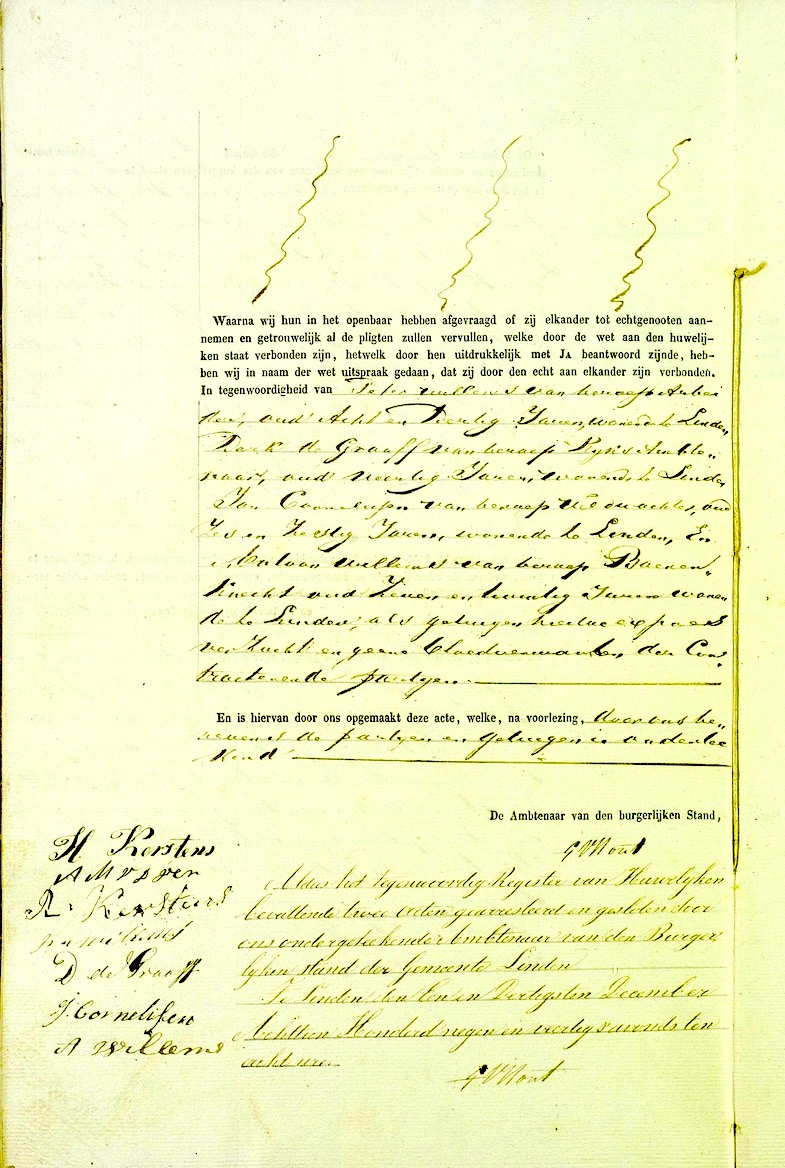 Waarna wij hun in het openbaar hebben afgevraagd of zij elkander tot echtgenooten aan-
nemen en getrouwelijk al de pligten zullen vervullen, welke door de wet aan den huwelij-
ken staat verbonden zijn, hetwelk door hen uitdrukkelijk met JA beantwoord zijnde, heb-
ben wij in naam der wet uitspraak gedaan, dat zij door den echt aan elkander zijn verbonden.
In tegenwoordigheid van Peter willems van beroep Arbei
der, oud Acht en Jaren, wonende te Linden
Derk de Graaff van beroep Ryks Ambte„
naar, oud Jaren, wonende te Linden
Jan Cornelissen van beroep oud
Zes en Zestig Jaren, wonende te Linden, En
Antoon willems van beroep Boeren„
knecht oud Zeven en twintig Jaren wonen
de te Linden, als getuigen hiertoe expres
verzucht en geene bloedverwanten der Con„
tracterende partyen.
En is hiervan door ons opgemaakt deze acte, welke, na voorlezing, door ons be„
nevens de partyen en getuigen is ondertee
kend
De Ambtenaar van den burgerlijken Stand,
H. Kerstens
Kerstens
willems
D de Graaff
J. Cornelissen
A willems
Aldus het tegenwoordig Register van Huwelyken
bevattende twee acten gearresteerd en gesloten door
ons ondergeteekende Ambtenaar van den Burger
lyken stand der Gemeente Linden
Te Linden den Een en Dertigsten December
Achttien Honderd negen en veertig s'avonds ten
acht ure.